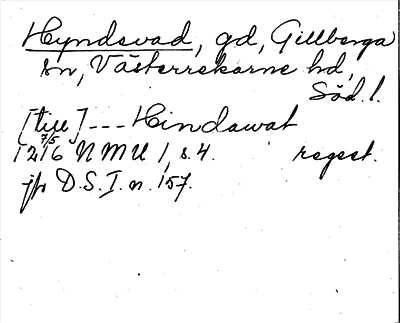 Hyndevad, gd, Gillberga
sn, Västerrekarne hd,
Söd. l.
[till] --- Hindawat
7/5
1216 NMU 1, s. 4. regest.
jfr D.S. I. n. 157.